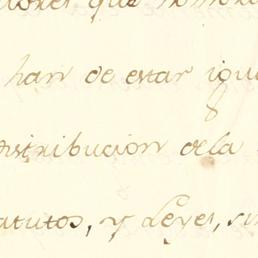 que
han de estar
8
distribucion dela
atutos, y Leyes, sin